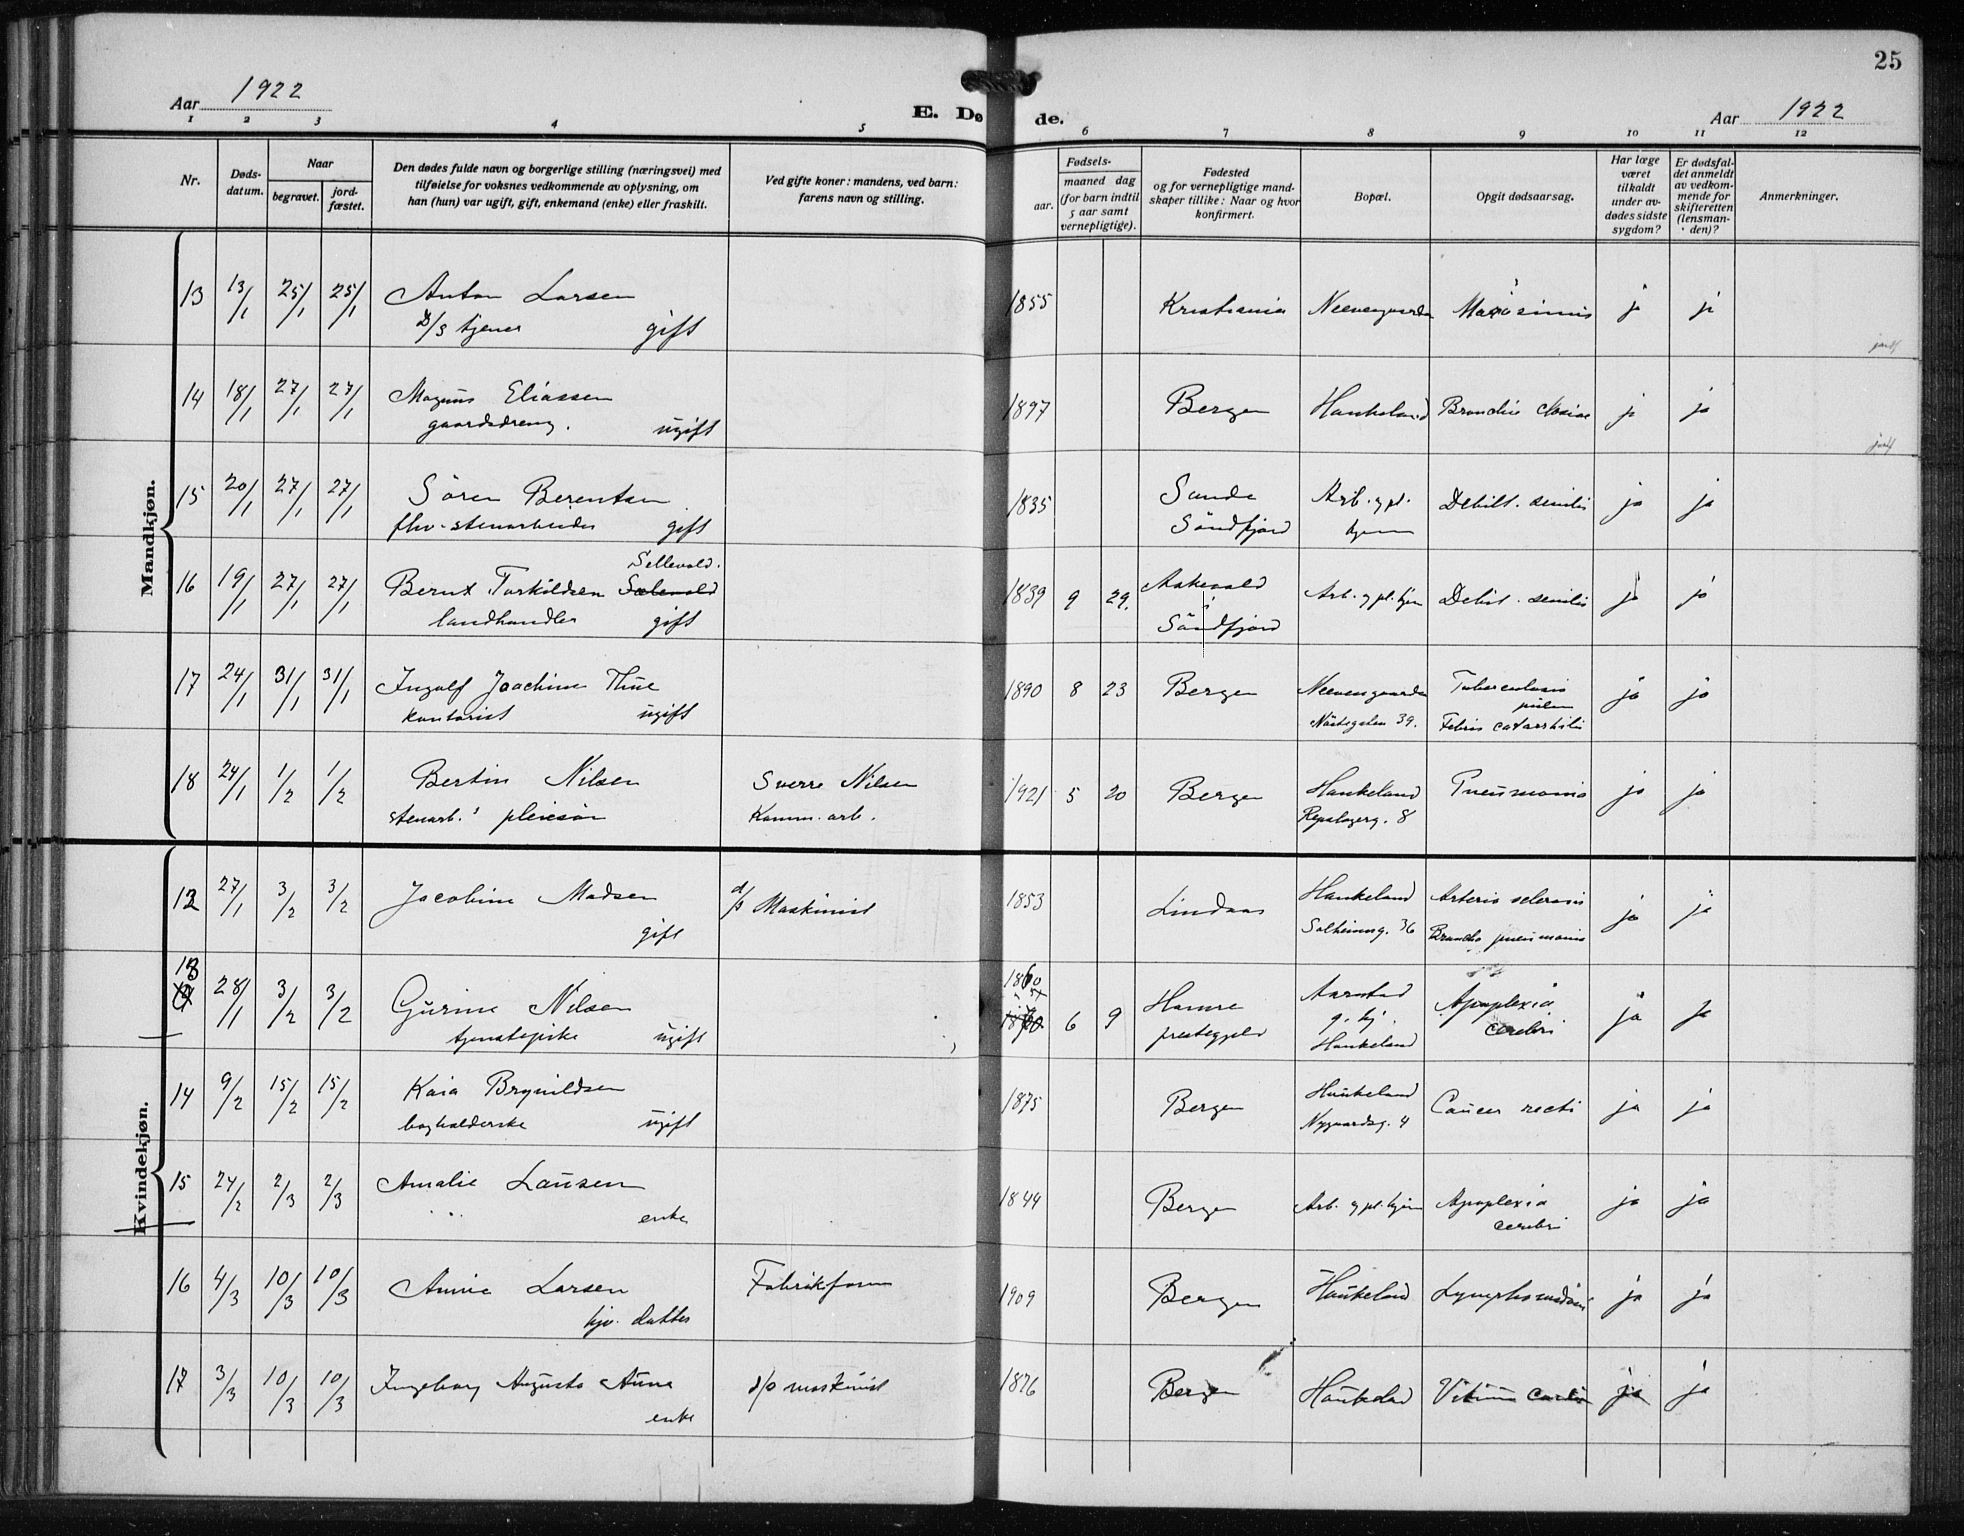 25
Aar 1922
E. Dø de.
Aar 1922
1 2 3 4 5 6 7 8 9 10 11 12
Nr.
Døds-datum.
Naar
begravet.
jord-fæstet.
Den dødes fulde navn og borgerlige stilling (næringsvei) med
tilføielse for voksnes vedkommende av oplysning, om
han (hun) var ugift, gift, enkemand (enke) eller fraskilt.
Ved gifte koner: mandens, ved barn:
farens navn og stilling.
Fødsels-
aar.
maaned dag
(for barn indtil
5 aar samt
vernepligtige).
Fødested
og for vernepligtige mand-
skaper tillike: Naar og hvor
konfirmert.
Bopæl.
Opgit dødsaarsag.
Har læge
været
tilkaldt
under av-
dødes sidste
sygdom?
Er dødsfal-
det anmeldt
av vedkom-
mende for
skifteretten
(lensman-
den)?
Anmerkninger.
Mandkjøn.
13 13/1 25/1 25/1 Anton Larsen 1855 Kristiania Neevengaarden ja ja
D/S tjener gift
14 18/1 27/1 27/1 Magnus Eliassen 1897 Bergen Haukeland ja ja
gaardsdreng. ugift
15 20/1 27/1 27/1 Sören Berentsen 1835 Sande Arb. & pl. Debilit. senilis ja ja
fhv. stenarbeider gift Söndfjord hjem
Sellevold.
16 19/1 27/1 27/1 Bernt Torkildsen Sælevold 1839 9 29. Askevold Arb. & pl. hjem Debilit. senilis ja ja
landhandler gift i Söndfjord
17 24/1 31/1 31/1 Ingolf Joachim Thue 1890 8 23 Bergen Neevengaarden Tuberculosis ja ja
pulm
kontorist ugift Nöstegaten 39. Febris catarrhalis
18 24/1 1/2 1/2 Bertin Nilsen Sverre Nilsen 1921 5 20 Bergen Haukeland Pneumonia ja ja
stenarb.s pleiesön Komm. arb. Repslagerg. 8
Kvindekjøn.
12 27/1 3/2 3/2 Jacobine Madsen d/s Maskinist 1853 Lindaas Haukeland Arterio sclerosis ja ja
gift Solheimsg. 36 Broncho pneumonia
13 28/1 3/2 3/2 Gurine Nilsen 1860 6 9 Hamre Aarstad Apoplexia ja ja
tjenestepike ugift prestegjeld g. hj. cerebri
Haukeland
14 9/2 15/2 15/2 Kaia Brynildsen 1875 Bergen Haukeland Cancer recti ja ja
bogholderske ugift Nygaardsg. 4
15 24/2 2/3 2/3 Amalie Lausen 1844 Bergen Arb. & pl. hjem Apoplexia ja ja
enke cerebri
16 4/3 10/3 10/3 Annie Larsen Fabrikform 1909 Bergen Haukeland ja ja
hjv. datter
17 3/3 10/3 10/3 Ingeborg Augusta Aune d/s maskinist 1876 Bergen Haukeland Vitium cordis ja ja
enke